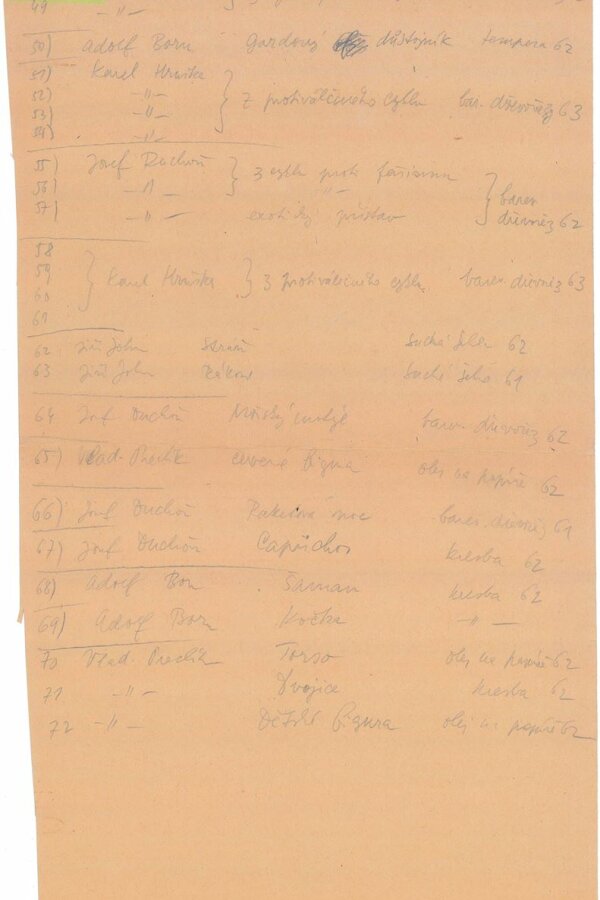 49 -"-
50) Adolf Born Gardový důstojník tempera 62
51) Karel Hruška
52) -"- z protiválečného cyklu bar. dřevořez 63
53) -"-
54) -"-
55) Josef Duchoň z cyklu proti fašismu
56) -"- -"- barev.
57) -"- exotický přístav dřevořez 62
58
59
60 Karel Hruška z protiválečného cyklu barev. dřevořez 63
61
62 Jiří John suchá jehla 62
63 Jiří John suchá jehla 61
64 Josef Duchoň barev. dřevořez 62
65) Vlad. Preclík červená figura olej na papíře 62
66) Josef Duchoň Raketová noc barev. dřevořez 61
67) Josef Duchoň Caprichos kresba 62
68) Adolf Born Šaman kresba 62
69) Adolf Born Kočka -"-
70 Vlad. Preclík Torso olej na papíře 62
71 -"- Dvojice kresba 62
72 -"- Dětská figura olej na papíře 62